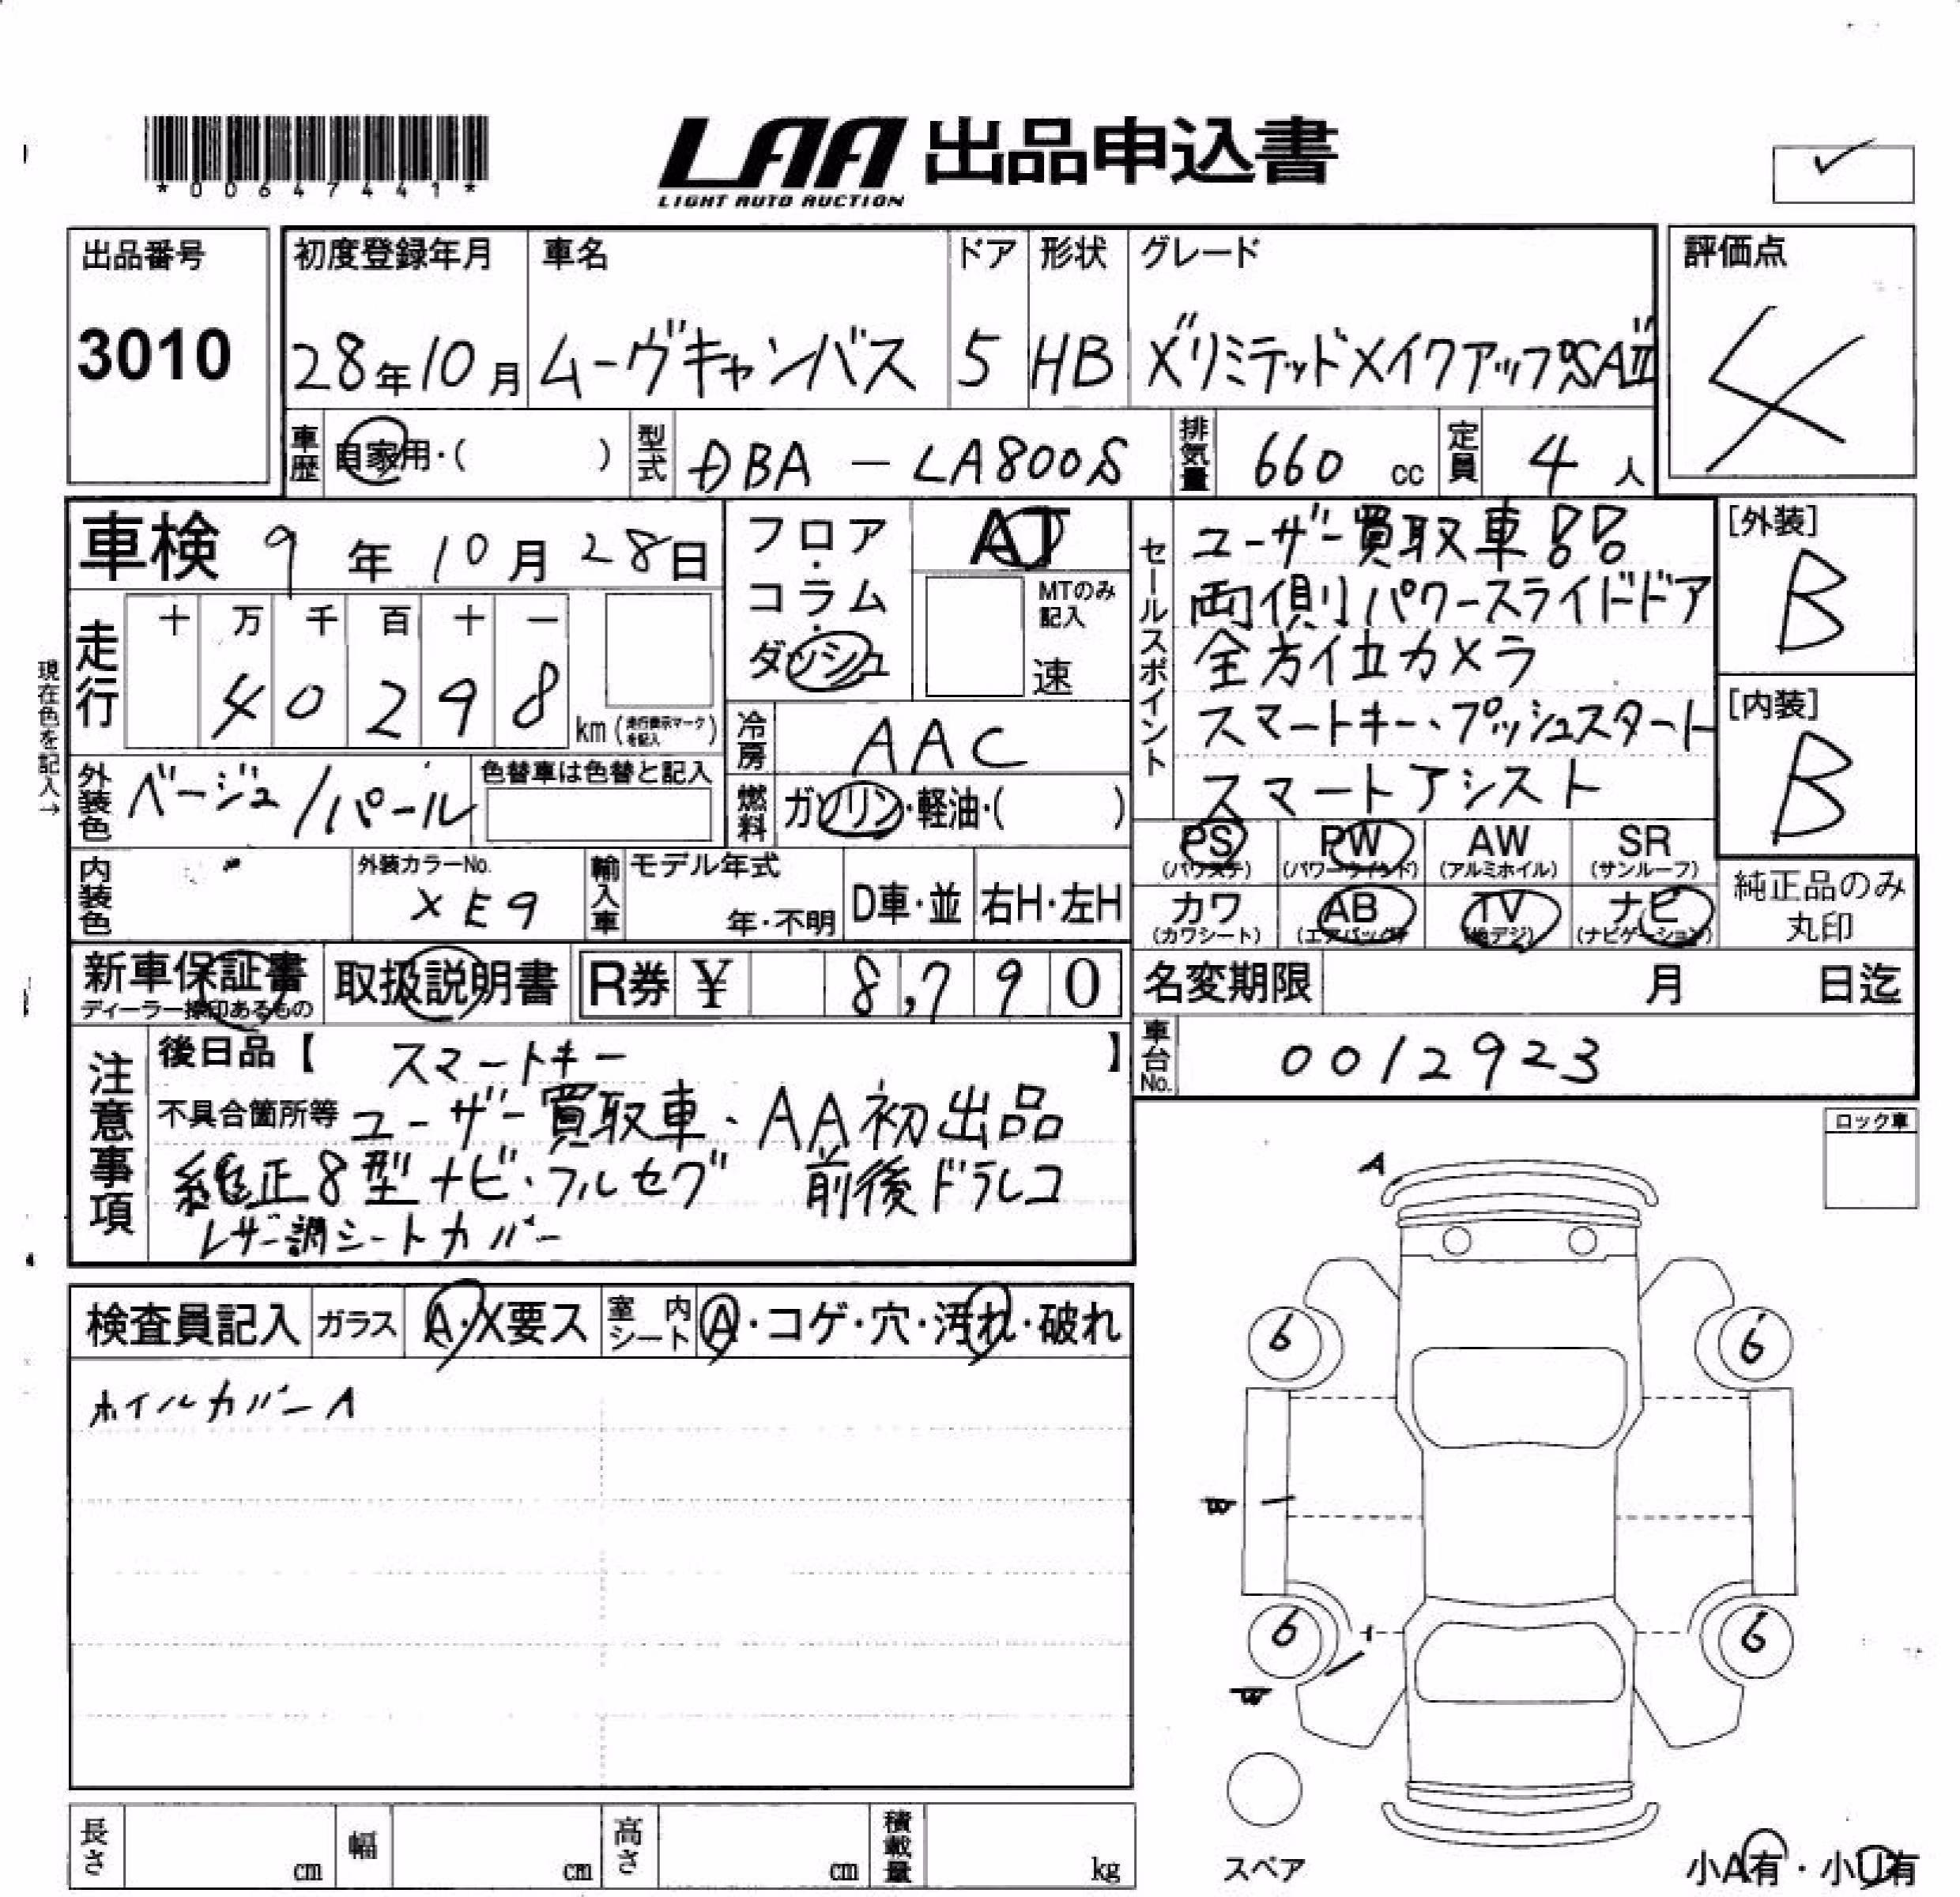 *00647441*
LAA 出品申込書
LIGHT AUTO AUCTION
✓
出品番号
3010
初度登録年月
28年10月
車名
ムーヴキャンバス
ドア
5
形状
HB
グレード
X"リミテッドメイクアップSAⅢ"
評価点
4
車歴
自家用・( )
型式
DBA - LA800S
排気量
660 cc
定員
4人
車検 9年10月28日
フロア・コラム・ダッシュ
AT
MTのみ記入
速
走行
十 万 千 百 十 一
4 0 2 9 8
km(走行表示マークを記入)
現在色を記入→
外装色
ベージュ/パール
色替車は色替と記入
冷房
AAC
燃料
ガソリン・軽油・( )
セールスポイント
ユーザー買取車!!
両側パワースライドドア
全方位カメラ
スマートキー、プッシュスタート
スマートアシスト
[外装]
B
[内装]
B
内装色
外装カラーNo.
XE9
輸入車
モデル年式
年・不明
D車・並
右H・左H
PS
(パワステ)
PW
(パワーウインド)
AW
(アルミホイル)
SR
(サンルーフ)
カワ
(カワシート)
AB
(エアバッグ)
TV
(地デジ)
ナビ
(ナビゲーション)
純正品のみ
丸印
新車保証書
ディーラー捺印あるもの
取扱説明書
R券 ¥ 8,790
名変期限 月 日迄
車台No.
0012923
注意事項
後日品【 スマートキー 】
不具合箇所等 ユーザー買取車、AA初出品
純正8型ナビ・フルセグ 前後ドラレコ
レザー調シートカバー
ロック車
A
検査員記入
ガラス
A・X要ス
室内シート
A・コゲ・穴・汚れ・破れ
ホイルカバーA
6
6
W
6
6
W
スペア
長さ
cm
幅
cm
高さ
cm
積載量
kg
小A有・小U有